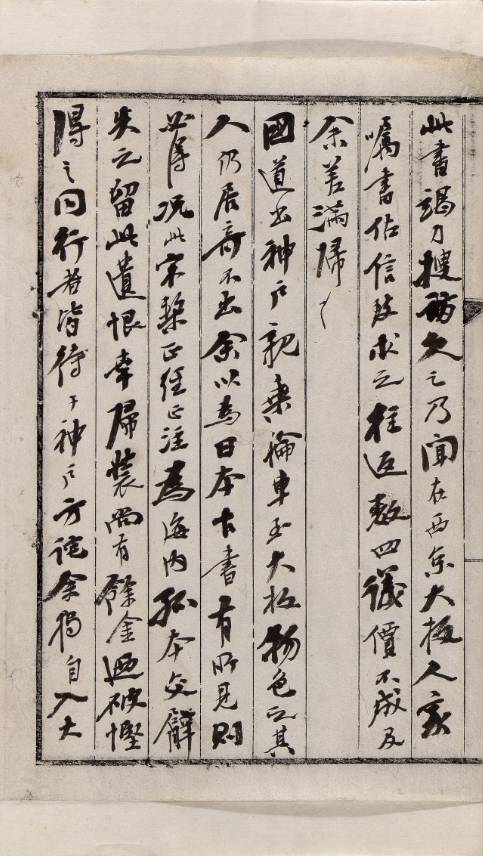 此書竭力搜訪久之乃聞在西京大板人家
囑書估信致求之往返數四議價不成及
余差滿歸
國道出神戶親乘輪車至大坂物色之其
人仍居奇不出余以為日本古書有所見則
必得況此宋槧正經正注為海內孤本交臂
失之留此遺恨幸歸裝尚有餘金迺破慳
得之同行者皆待于神戶方詫余獨自入大